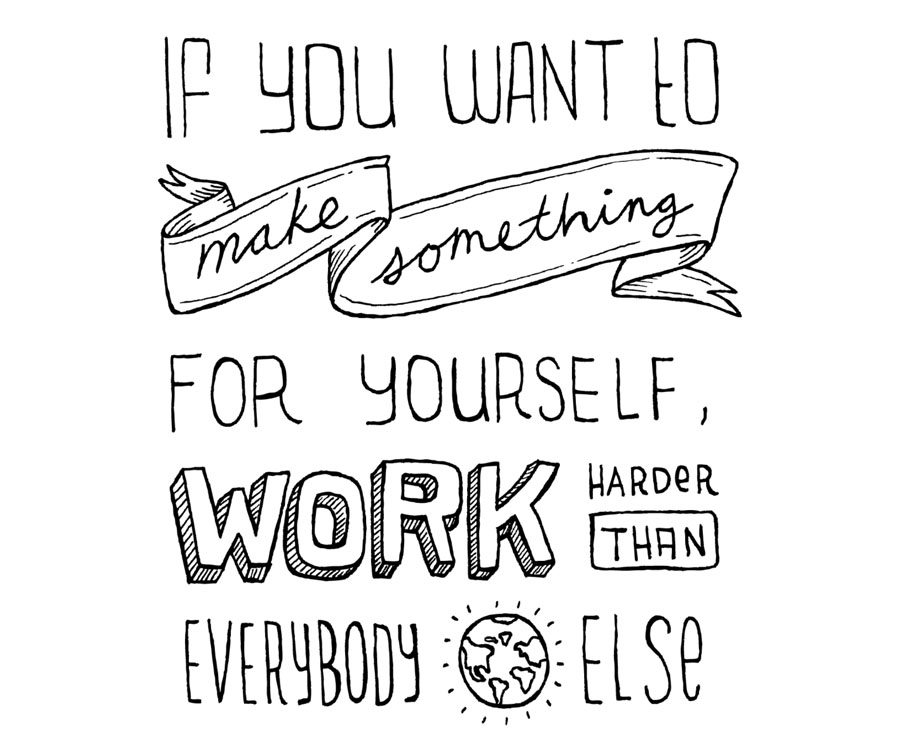 IF YOU WANT tO
make something
FOR YOURSELF,
WORK HARDeR
THAN
EVERYBODY ELSe